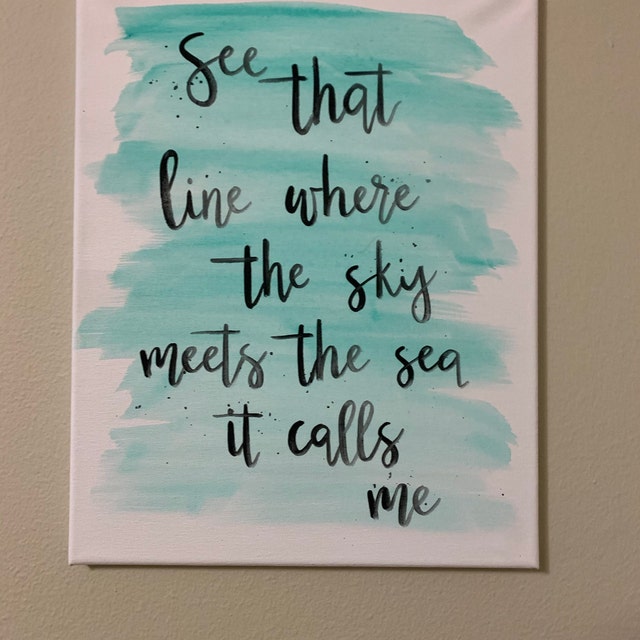 See
that
line where
the sky
meets the sea
it calls
me